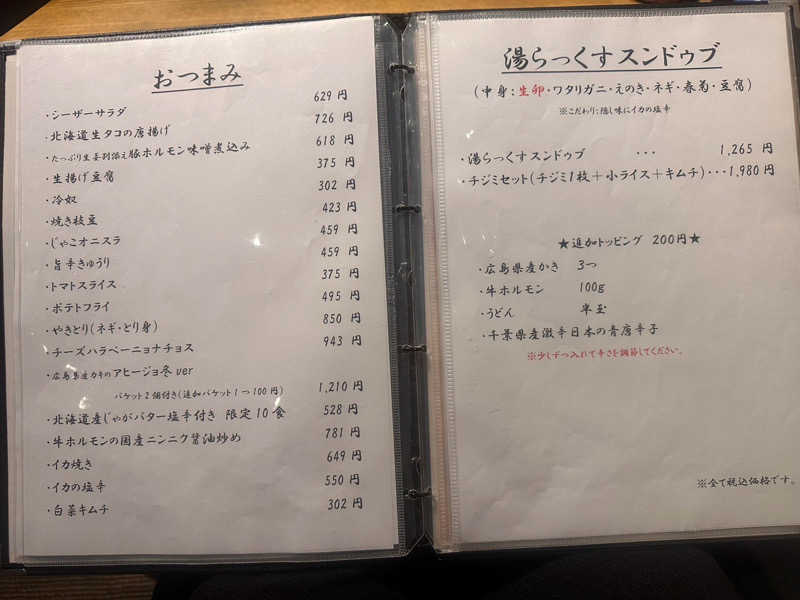 おつまみ
・シーザーサラダ 629 円
・北海道生タコの唐揚げ 726 円
・たっぷり生姜別添え豚ホルモン味噌煮込み 618 円
・生揚げ豆腐 375 円
・冷奴 302 円
・焼き枝豆 423 円
・じゃこオニスラ 459 円
・旨辛きゅうり 459 円
・トマトスライス 375 円
・ポテトフライ 495 円
・やきとり(ネギ・とり身) 850 円
・チーズハラペーニョナチョス 943 円
・広島県産カキのアヒージョ冬 ver
バケット2個付き(追加バケット1つ100円) 1,210 円
・北海道産じゃがバター塩辛付き 限定10食 528 円
・牛ホルモンの国産ニンニク醤油炒め 781 円
・イカ焼き 649 円
・イカの塩辛 550 円
・白菜キムチ 302 円
湯らっくすスンドゥブ
(中身:生卵・ワタリガニ・えのき・ネギ・春菊・豆腐)
※こだわり:隠し味にイカの塩辛
・湯らっくすスンドゥブ ・・・ 1,265 円
・チジミセット(チジミ1枚+小ライス+キムチ)・・・1,980円
★追加トッピング 200円★
・広島県産かき 3つ
・牛ホルモン 100g
・うどん 半玉
・千葉県産激辛日本の青唐辛子
※少しずつ入れて辛さを調節してください。
※全て税込価格です。